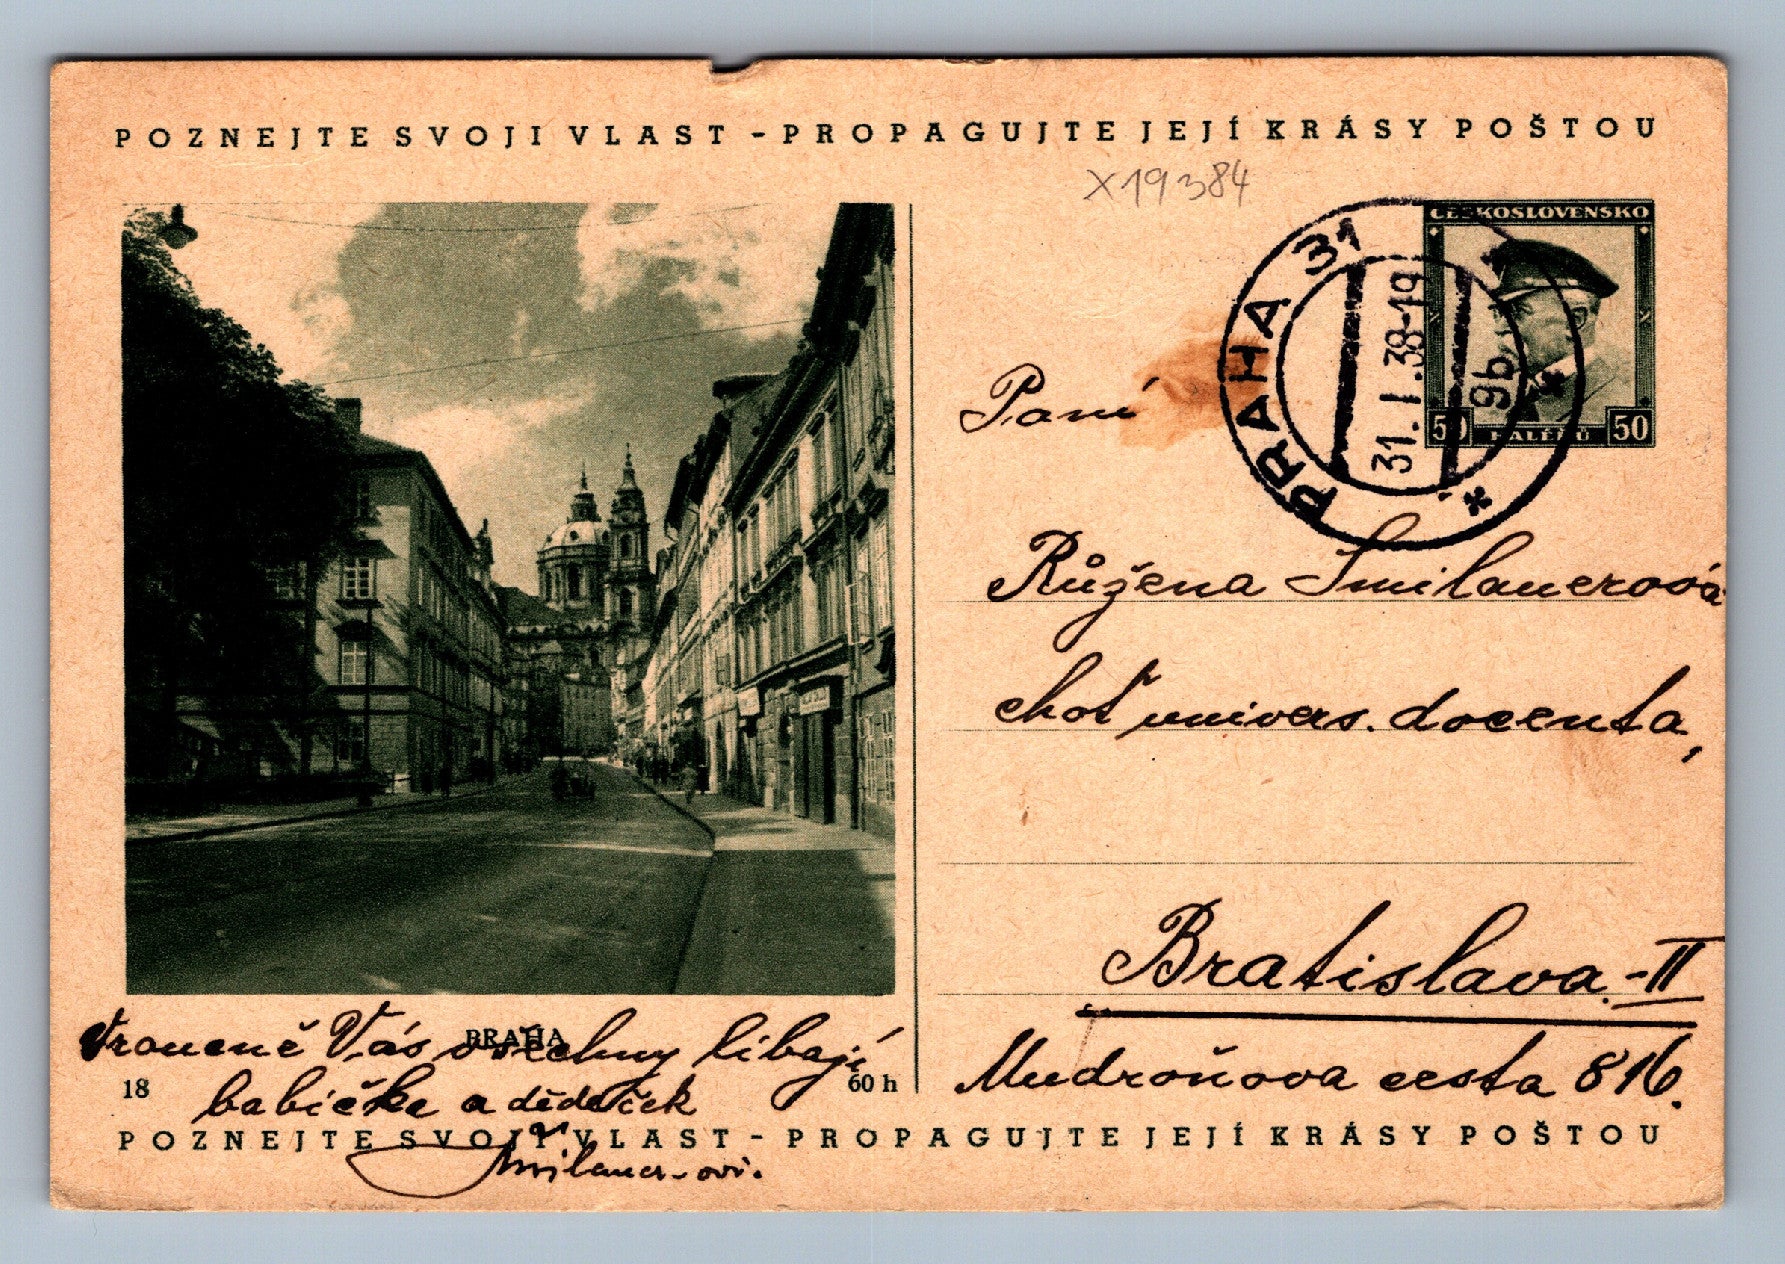 POZNEJTE SVOJI VLAST - PROPAGUJTE JEJÍ KRÁSY POŠTOU
X19384
ČESKOSLOVENSKO
50 HALÉŘŮ 50
PRAHA 31
31. I. 38-19
9b
*
Paní
Růžena Smilauerová
choť univers. docenta,
Bratislava-II
Mudroňova cesta 816.
PRAHA
Vroucně Vás všechny líbají
18
60 h
babička a dědeček
POZNEJTE SVOJI VLAST - PROPAGUJTE JEJÍ KRÁSY POŠTOU
Smilauer-ovi.